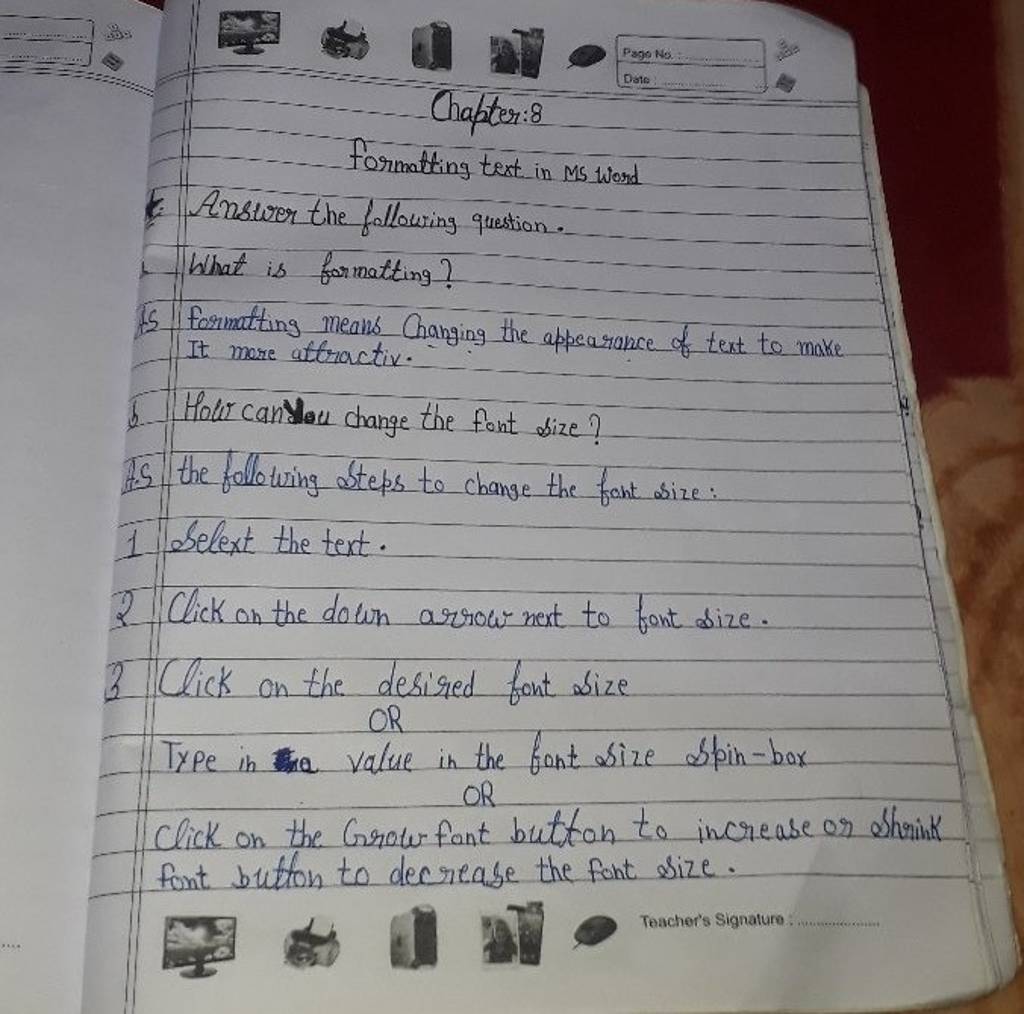 Page No. :
Date :
Chapter:8
formatting text in MS Word
Answer the following question.
What is formatting?
AS formatting means Changing the appearance of text to make
It more attractiv.
b How can You change the font size?
A.S the following steps to change the font size:
1 Selext the text.
2 Click on the down arrow next to font size.
3 Click on the desired font size
OR
Type in a value in the font size Spin-box
OR
Click on the Grow font button to increase or Shrink
font button to decrease the font size.
Teacher's Signature :